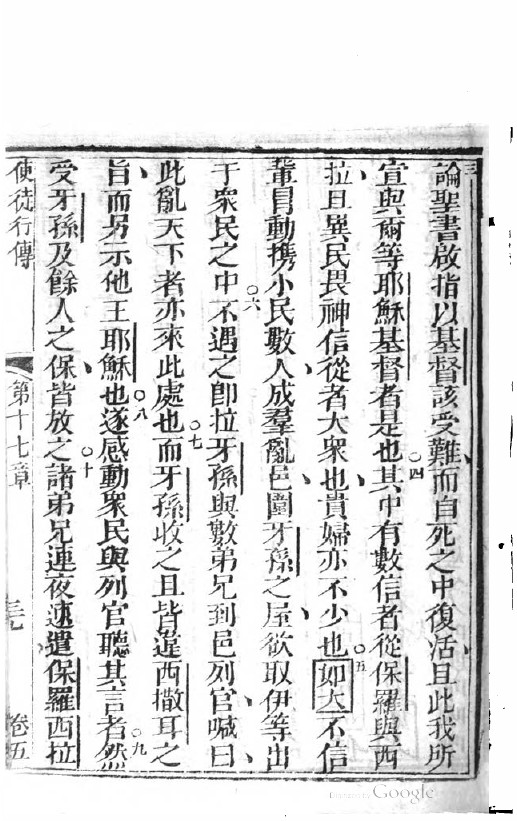 三論聖書啟指以基督該受難而自死之中復活且此我所
宣與爾等耶穌基督者是也○四其中有數信者從保羅與西
拉且異民畏神信從者大衆也貴婦亦不少也○五如大不信
輩冐動携小民數人成羣亂邑圍牙孫之屋欲取伊等出
于衆民之中○六不遇之卽拉牙孫與數弟兄到邑列官喊曰
此亂天下者亦來此處也○七而牙孫收之且皆違西撒耳之
旨而另示他王耶穌也○八遂感動衆民與列官聽其言者○九然
受牙孫及餘人之保皆放之○十諸弟兄連夜速遣保羅西拉
使徒行傳 第十七章 三七 卷五
Digitized by Google